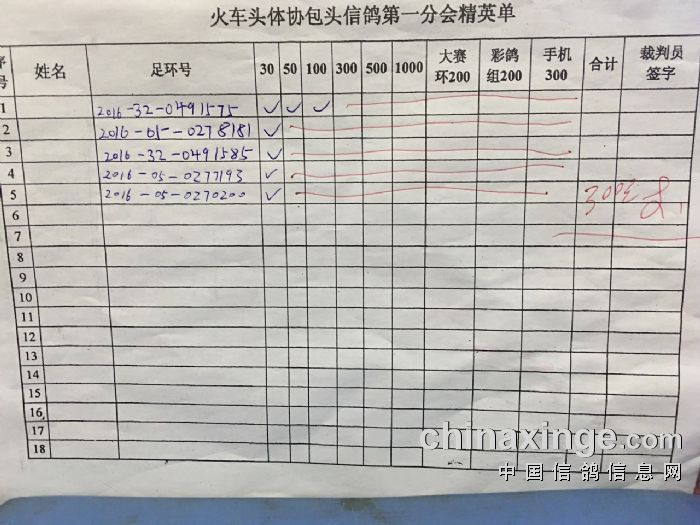 火车头体协包头信鸽第一分会精英单
序号 姓名 足环号 30 50 100 300 500 1000 大赛环200 彩鸽组200 手机300 合计 裁判员签字
1 2016-32-0491575 ✓ ✓ ✓
2 2016-05-0278181 ✓
3 2016-32-0491585 ✓
4 2016-05-0277193 ✓
5 2016-05-0270200 ✓ 300
6
7
8
9
10
11
12
13
14
15
16
17
18
chinaxinge.com
中国信鸽信息网